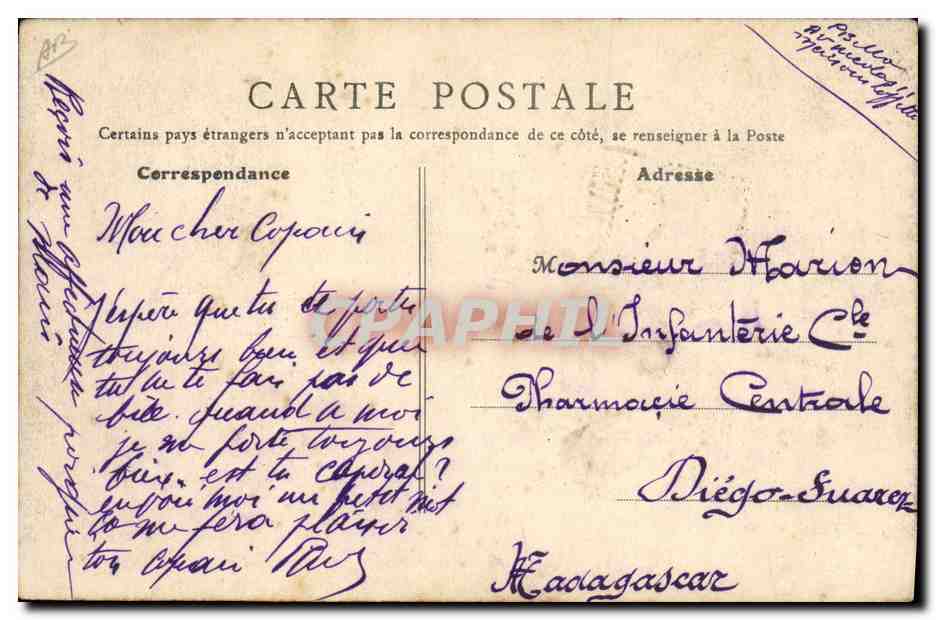 CARTE POSTALE
Certains pays étrangers n'acceptent pas la correspondance de ce côté, se renseigner à la Poste
Correspondance
Adresse
Mon cher Copain
J'espère que tu te porte
toujours bien et que
tu ne te fai pas de
bile. quand a moi
je me porte toujours
bien. est tu caporal?
envoi moi un petit mot
ça me fera plaisir
ton copain
Monsieur Marion
de l'Infanterie Cle
Pharmacie Centrale
Diégo-Suarez
Madagascar
Reçois une
de
CPAPHIL